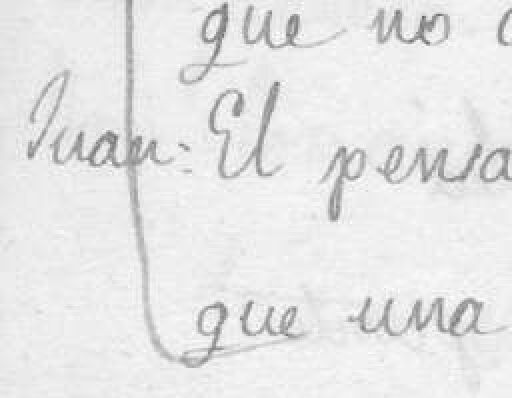 que no
Juan: El pensa
que una